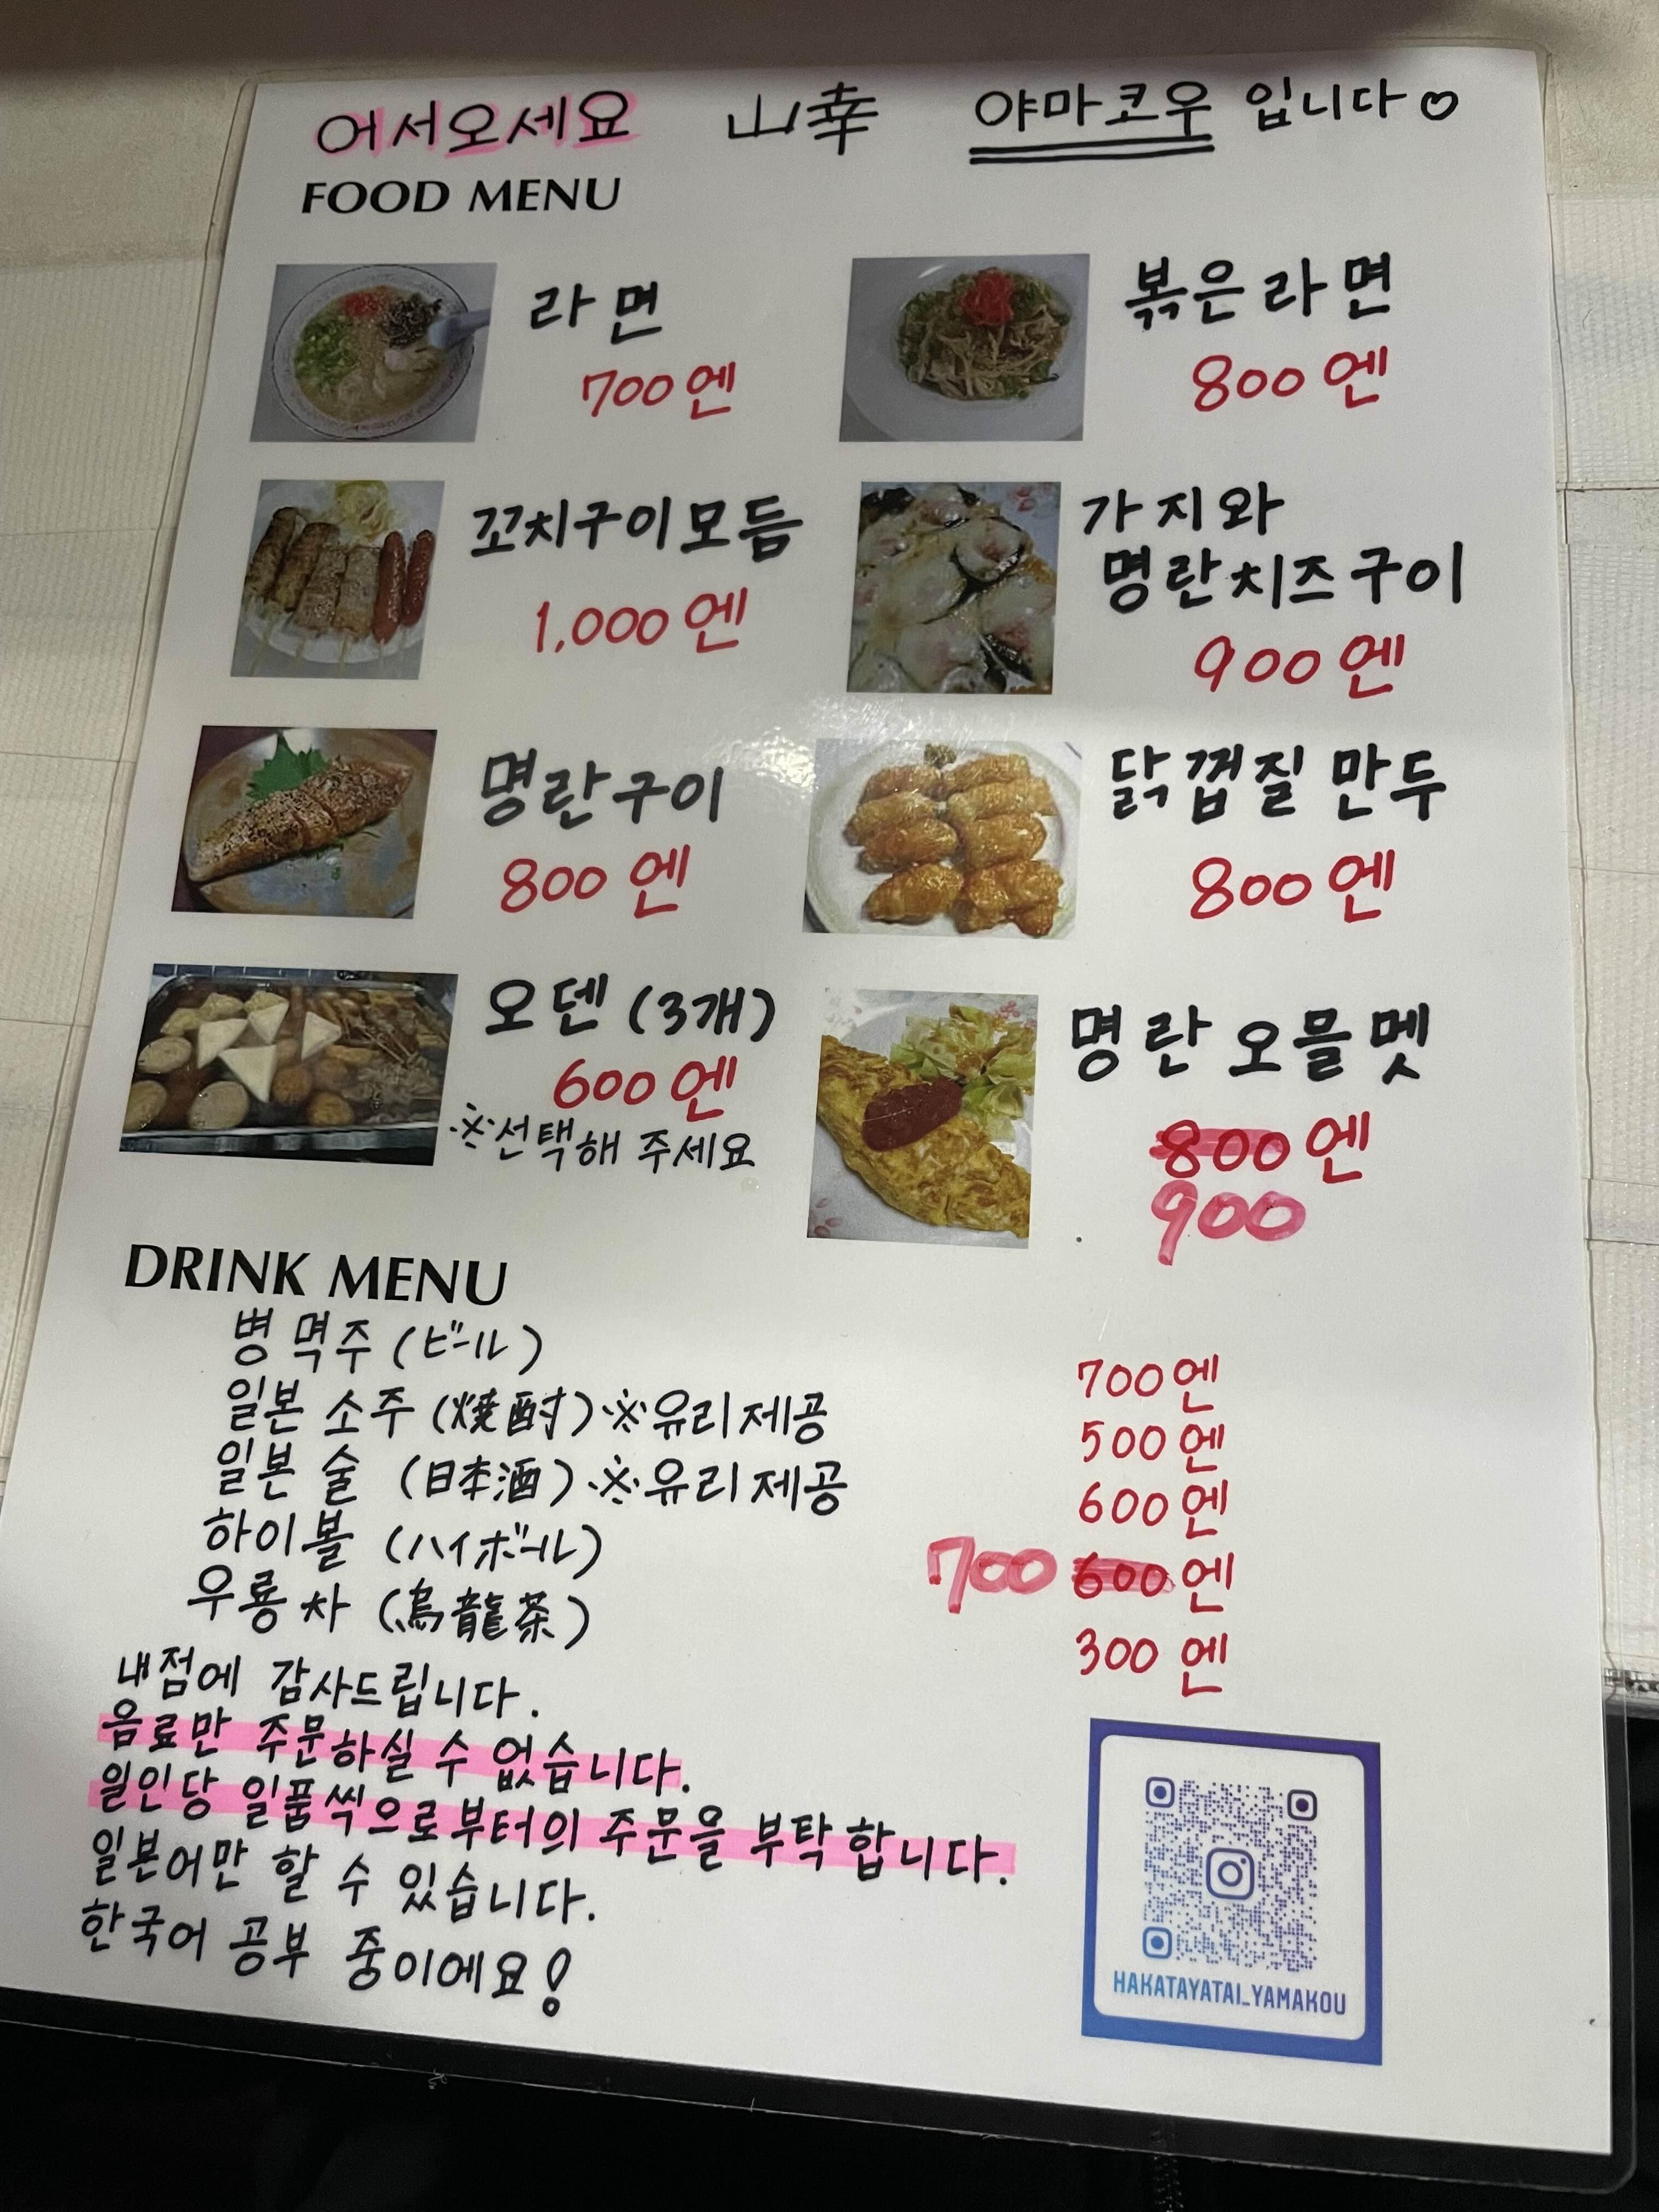 어서오세요 山幸 야마코우 입니다♡
FOOD MENU
라면
700엔
볶은라면
800엔
꼬치구이모듬
1,000엔
가지와
명란치즈구이
900엔
명란구이
800엔
닭껍질 만두
800엔
오덴 (3개)
600엔
※선택해 주세요
명란오믈멧
800엔
900
DRINK MENU
병 멱주 (ビール) 700엔
일본 소주 (焼酎) ※유리제공 500엔
일본 술 (日本酒) ※유리제공 600엔
하이볼 (ハイボール) 700 600엔
우룡차 (烏龍茶) 300엔
내점에 감사드립니다.
음료만 주문하실 수 없습니다.
일인당 일품씩으로부터의 주문을 부탁합니다.
일본어만 할 수 있습니다.
한국어 공부 중이에요!
HAKATAYATAI_YAMAKOU